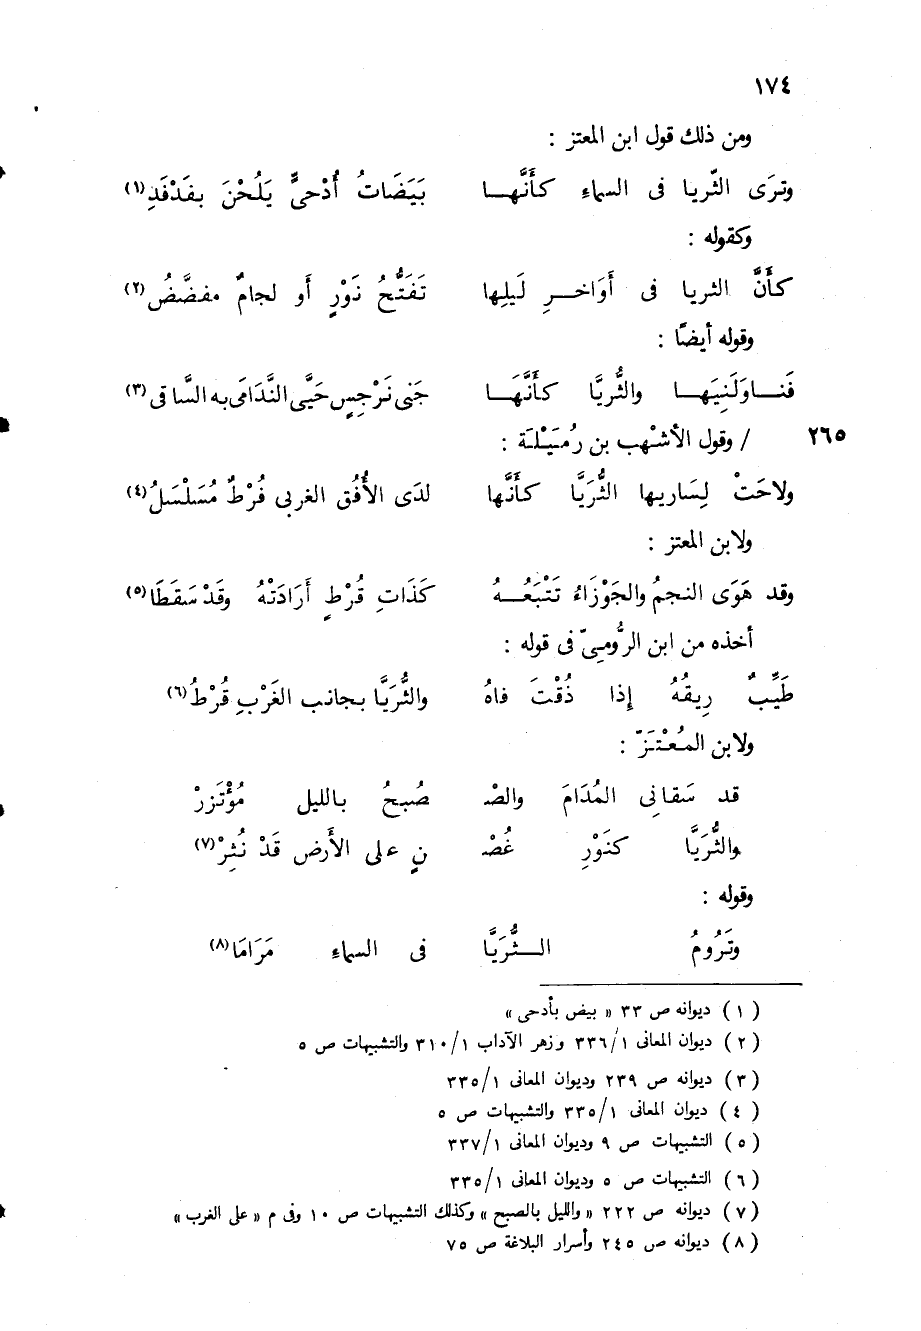 ١٧٤
ومن ذلك قول ابن المعتز :
وترَى الثّريا فى السماءِ كأنَّهـــا بَيَضَاتُ أُدْحىٍّ يَلُحْنَ بفَدْفَدِ(١)
وكقوله :
كأَنَّ الثريا فى أَوَاخـــرِ لَيلِها تَفَتُّحُ نَوْرٍ أَو لجامٌ مفضَّضُ(٢)
وقوله أيضًا :
فَنـــاوَلَنِيَهـــا والثُّريَّا كأنَّهَـــا جَنى نَرْجِسٍ حَيَّى النَّدَامَى به السَّاقى(٣)
٢٦٥ / وقول الأشْهب بن رُمَيْلَة :
ولاحَتْ لِسَاريها الثُّرَيَّا كأنَّها لدَى الأُفُقِ الغربى قُرْطٌ مُسَلْسَلُ(٤)
ولابن المعتز :
وقد هَوَى النجمُ والجَوْزَاءُ تَتْبَعُـــهُ كَذَاتِ قُرْطٍ أَرَادَتْهُ وقَدْ سَقَطَا(٥)
أخذه من ابن الرُّومىّ فى قوله :
طَيِّبٌ رِيقُهُ إِذا ذُقْتَ فاهُ والثُّرَيَّا بجانب الغَرْبِ قُرْطُ(٦)
ولابن المُعْتَزّ :
قد سَقانِى المُدَامَ والصْ صُبحُ بالليل مُؤْتَزرْ
والثُّرَيَّا كنَوْرِ غُصْـ ـنٍ على الأَرض قَدْ نُثِرْ(٧)
وقوله :
وتَرُومُ الـــثُّرَيَّا فى السماءِ مَرَامَا(٨)
(١) ديوانه ص ٣٣ « بيض بأدحى »
(٢) ديوان المعانى ٣٣٦/١ وزهر الآداب ٣١٠/١ والتشبيهات ص ٥
(٣) ديوانه ص ٢٣٩ وديوان المعانى ٣٣٥/١
(٤) ديوان المعانى ٣٣٥/١ والتشبيهات ص ٥
(٥) التشبيهات ص ٩ وديوان المعانى ٣٣٧/١
(٦) التشبيهات ص ٥ وديوان المعانى ٣٣٥/١
(٧) ديوانه ص ٢٢٢ « والليل بالصبح » وكذلك التشبيهات ص ١٠ وفى م « على الغرب »
(٨) ديوانه ص ٢٤٥ وأسرار البلاغة ص ٧٥